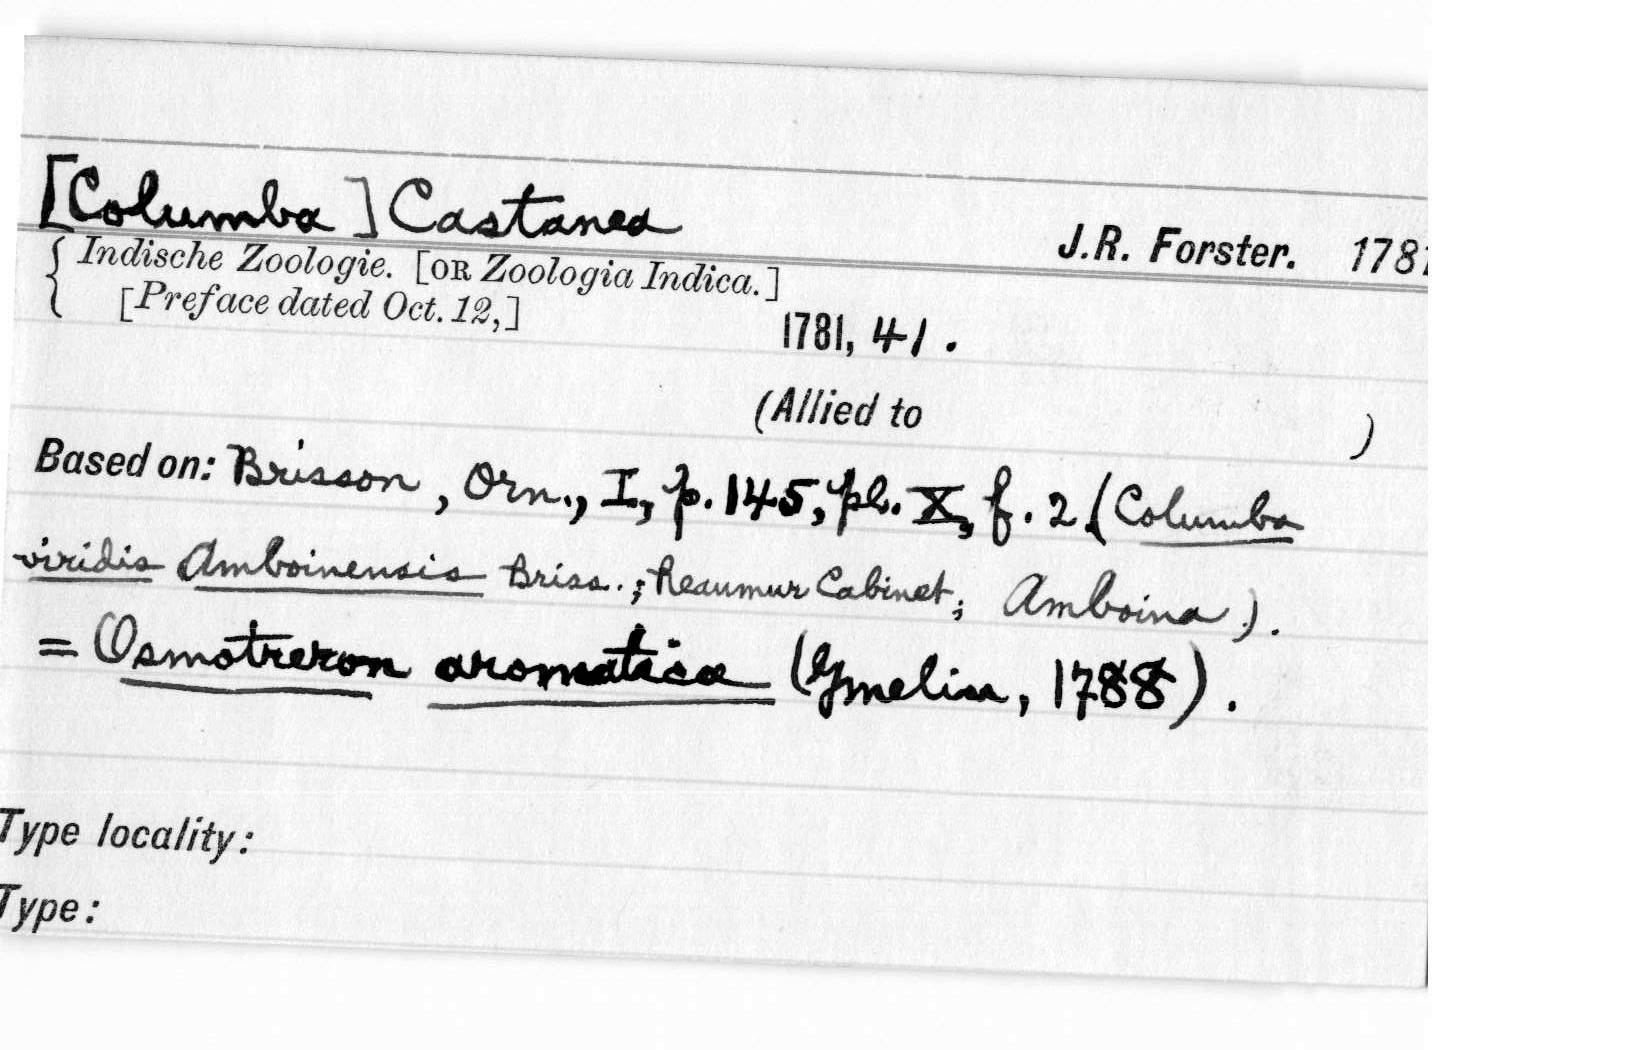 [Columba] Castanea
J.R. Forster. 1781
{ Indische Zoologie. [OR Zoologia Indica.]
[Preface dated Oct. 12,]
1781, 41.
(Allied to )
Based on: Brisson, Orn., I, p. 145, pl. X, f. 2 (Columba
viridis Amboinensis Briss.; Reaumur Cabinet; Amboina).
= Osmotreron aromatica (Gmelin, 1788).
Type locality:
Type: